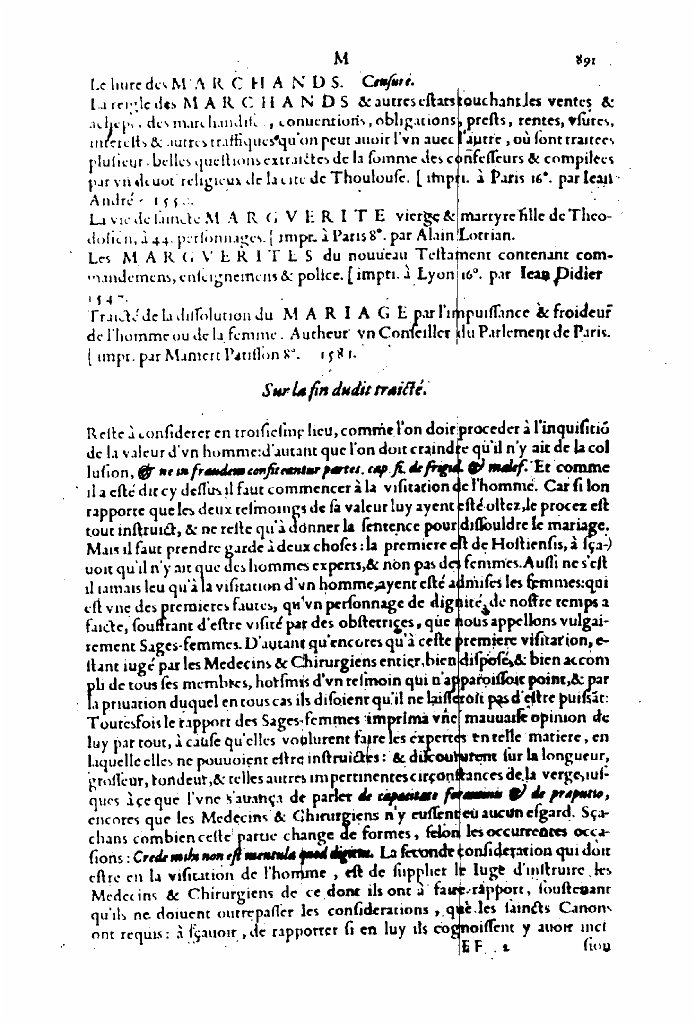 M 891
Le liure des MARCHANDS. Censuré.
La reigle des MARCHANDS & autres estats touchant les ventes &
achepts des marchandises, conuentions, obligations, prests, rentes, vsures,
interests & autres traffiques qu'on peut auoir l'vn auec l'autre, où sont traitees
plusieurs belles questions extraictes de la somme des confesseurs & compilees
par vn deuot religieux de la cité de Thoulouse. [impri. à Paris 16°. par Iean
André 155
La vie de saincte MARGVERITE vierge & martyre fille de Theo-
dosien, à 44. personnages. [impr. à Paris 8°. par Alain Lotrian.
Les MARGVERITES du nouueau Testament contenant com-
mandemens, enseignemens & police. [impri. à Lyon 16°. par Iean Didier
1547
Traicté de la dissolution du MARIAGE par l'impuissance & froideur
de l'homme ou de la femme. Autheur vn Conseiller du Parlement de Paris.
[impr. par Mamert Patisson 8°. 1581.
Sur la fin dudit traicté.
Reste à considerer en troisiesme lieu, comme l'on doit proceder à l'inquisitiõ
de la valeur d'vn homme: d'autant que l'on doit craindre qu'il n'y ait de la col
lusion, & ne in fraudem confiteantur partes. cap. fi. de frigid. & malef. Et comme
il a esté dit cy dessus il faut commencer à la visitation de l'homme. Car si lon
rapporte que les deux tesmoings de sa valeur luy ayent esté ostez, le procez est
tout instruict, & ne reste qu'à donner la sentence pour dissouldre le mariage.
Mais il faut prendre garde à deux choses: la premiere est de Hostiensis, à sça-)
uoit qu'il n'y ait que des hommes experts, & non pas des femmes. Aussi ne s'est
il iamais leu qu'à la visitation d'vn homme, ayent esté admises les femmes: qui
est vne des premieres fautes, qu'vn personnage de dignité, de nostre temps a
faicte, souffrant d'estre visité par des obstetrices, que nous appellons vulgai-
rement Sages-femmes. D'autant qu'encores qu'à ceste premiere visitation, e-
stant iugé par les Medecins & Chirurgiens entier, bien disposé, & bien accom
pli de tous ses membres, horsmis d'vn tesmoin qui n'apparoissoit point, & par
la priuation duquel en tous cas ils disoient qu'il ne laisseroit pas d'estre puissãt:
Toutesfois le rapport des Sages-femmes imprima vne mauuaise opinion de
luy par tout, à cause qu'elles voulurent faire les expertes en telle matiere, en
laquelle elles ne pouuoient estre instruictes: & discoururent sur la longueur,
grosseur, rondeur, & telles autres impertinentes circonstances de la verge, ius-
ques à ce que l'vne s'auança de parler de capacitate foraminis & de praputio,
encores que les Medecins & Chirurgiens n'y eussent eü aucun esgard. Sça-
chans combien ceste partie change de formes, selon les occurrences occa-
sions: Crede mihi non est mentula quod digitus. La seconde consideration qui doit
estre en la visitation de l'homme, est de supplier le Iuge d'instruire les
Medecins & Chirurgiens de ce dont ils ont à faire rapport, soustenant
qu'ils ne doiuent outrepasser les considerations, que les saincts Canons
ont requis: à sçauoir, de rapporter si en luy ils cognoissent y auoir incī
EF 2 sion